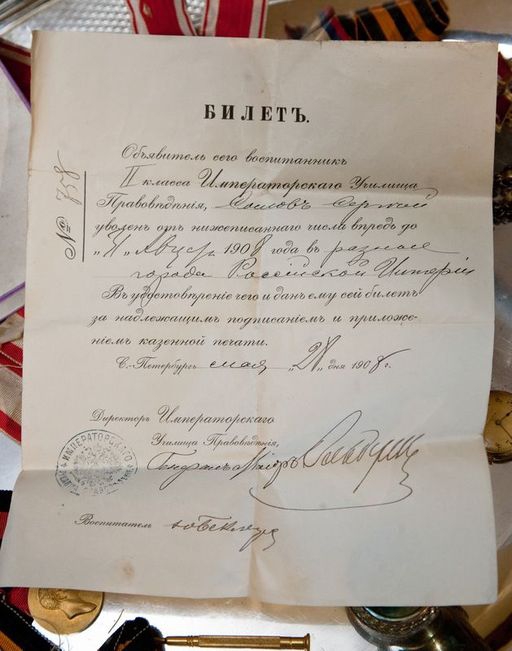 БИЛЕТЪ.
№ 758
Объявитель сего воспитанникъ
II класса Императорскаго Училища
Правовѣдѣнія, Сергѣй
уволенъ отъ нижеписаннаго числа впредь до
"1" Август 1908 года въ разные
города Россійской Имперіи
Въ удостовѣреніе чего и данъ ему сей билетъ
за надлежащимъ подписаніемъ и приложе-
ніемъ казенной печати.
С.-Петербургъ мая "28" дня 1908 г.
Директоръ Императорскаго
Училища Правовѣдѣнія,
ИМПЕРАТОРСКАГО
Воспитатель